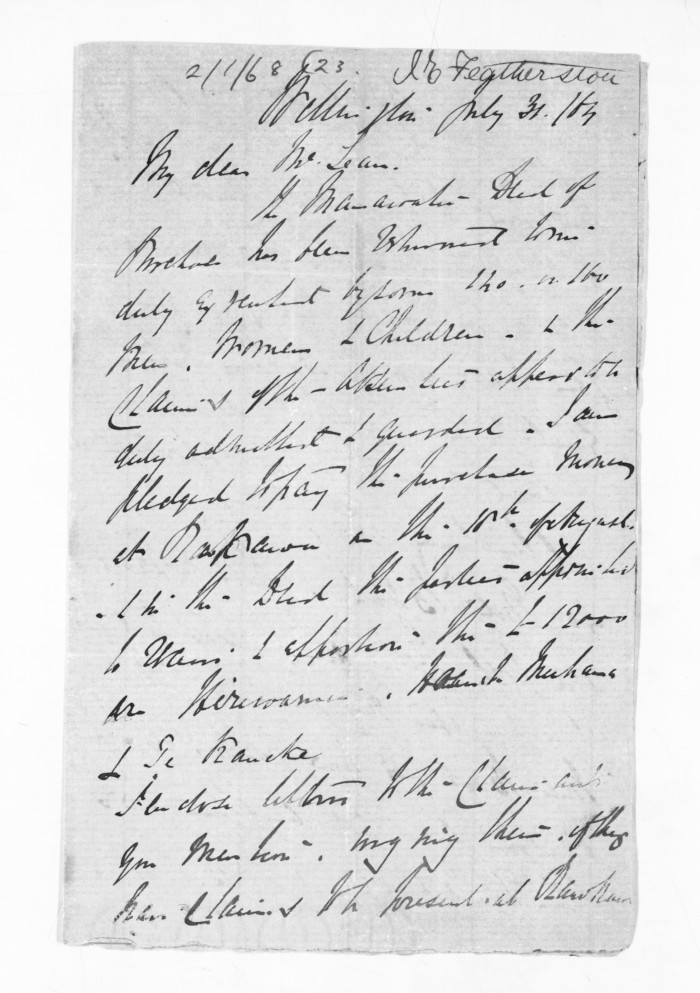 2/1/68 £23. I E Featherston
Wellington July 31. /67
My dear McLean.
The Manawatu Deed of
Purchase has been returned to me
duly executed by some 120. or 160
Men, Women & Children - & the
Claims of the Absentees appear to be
duly admitted & guarded. I am
pledged to pay the purchase money
at Rawkawa on the 10th of August.
- & in the Deed the parties appointed
to receive & apportion the £12000
are Hirewanu, Hoani Meihana
& Te Rauche
I enclose letters to the Claimants
you mention, urging them, if they
have Claims to be present at Rawkawa